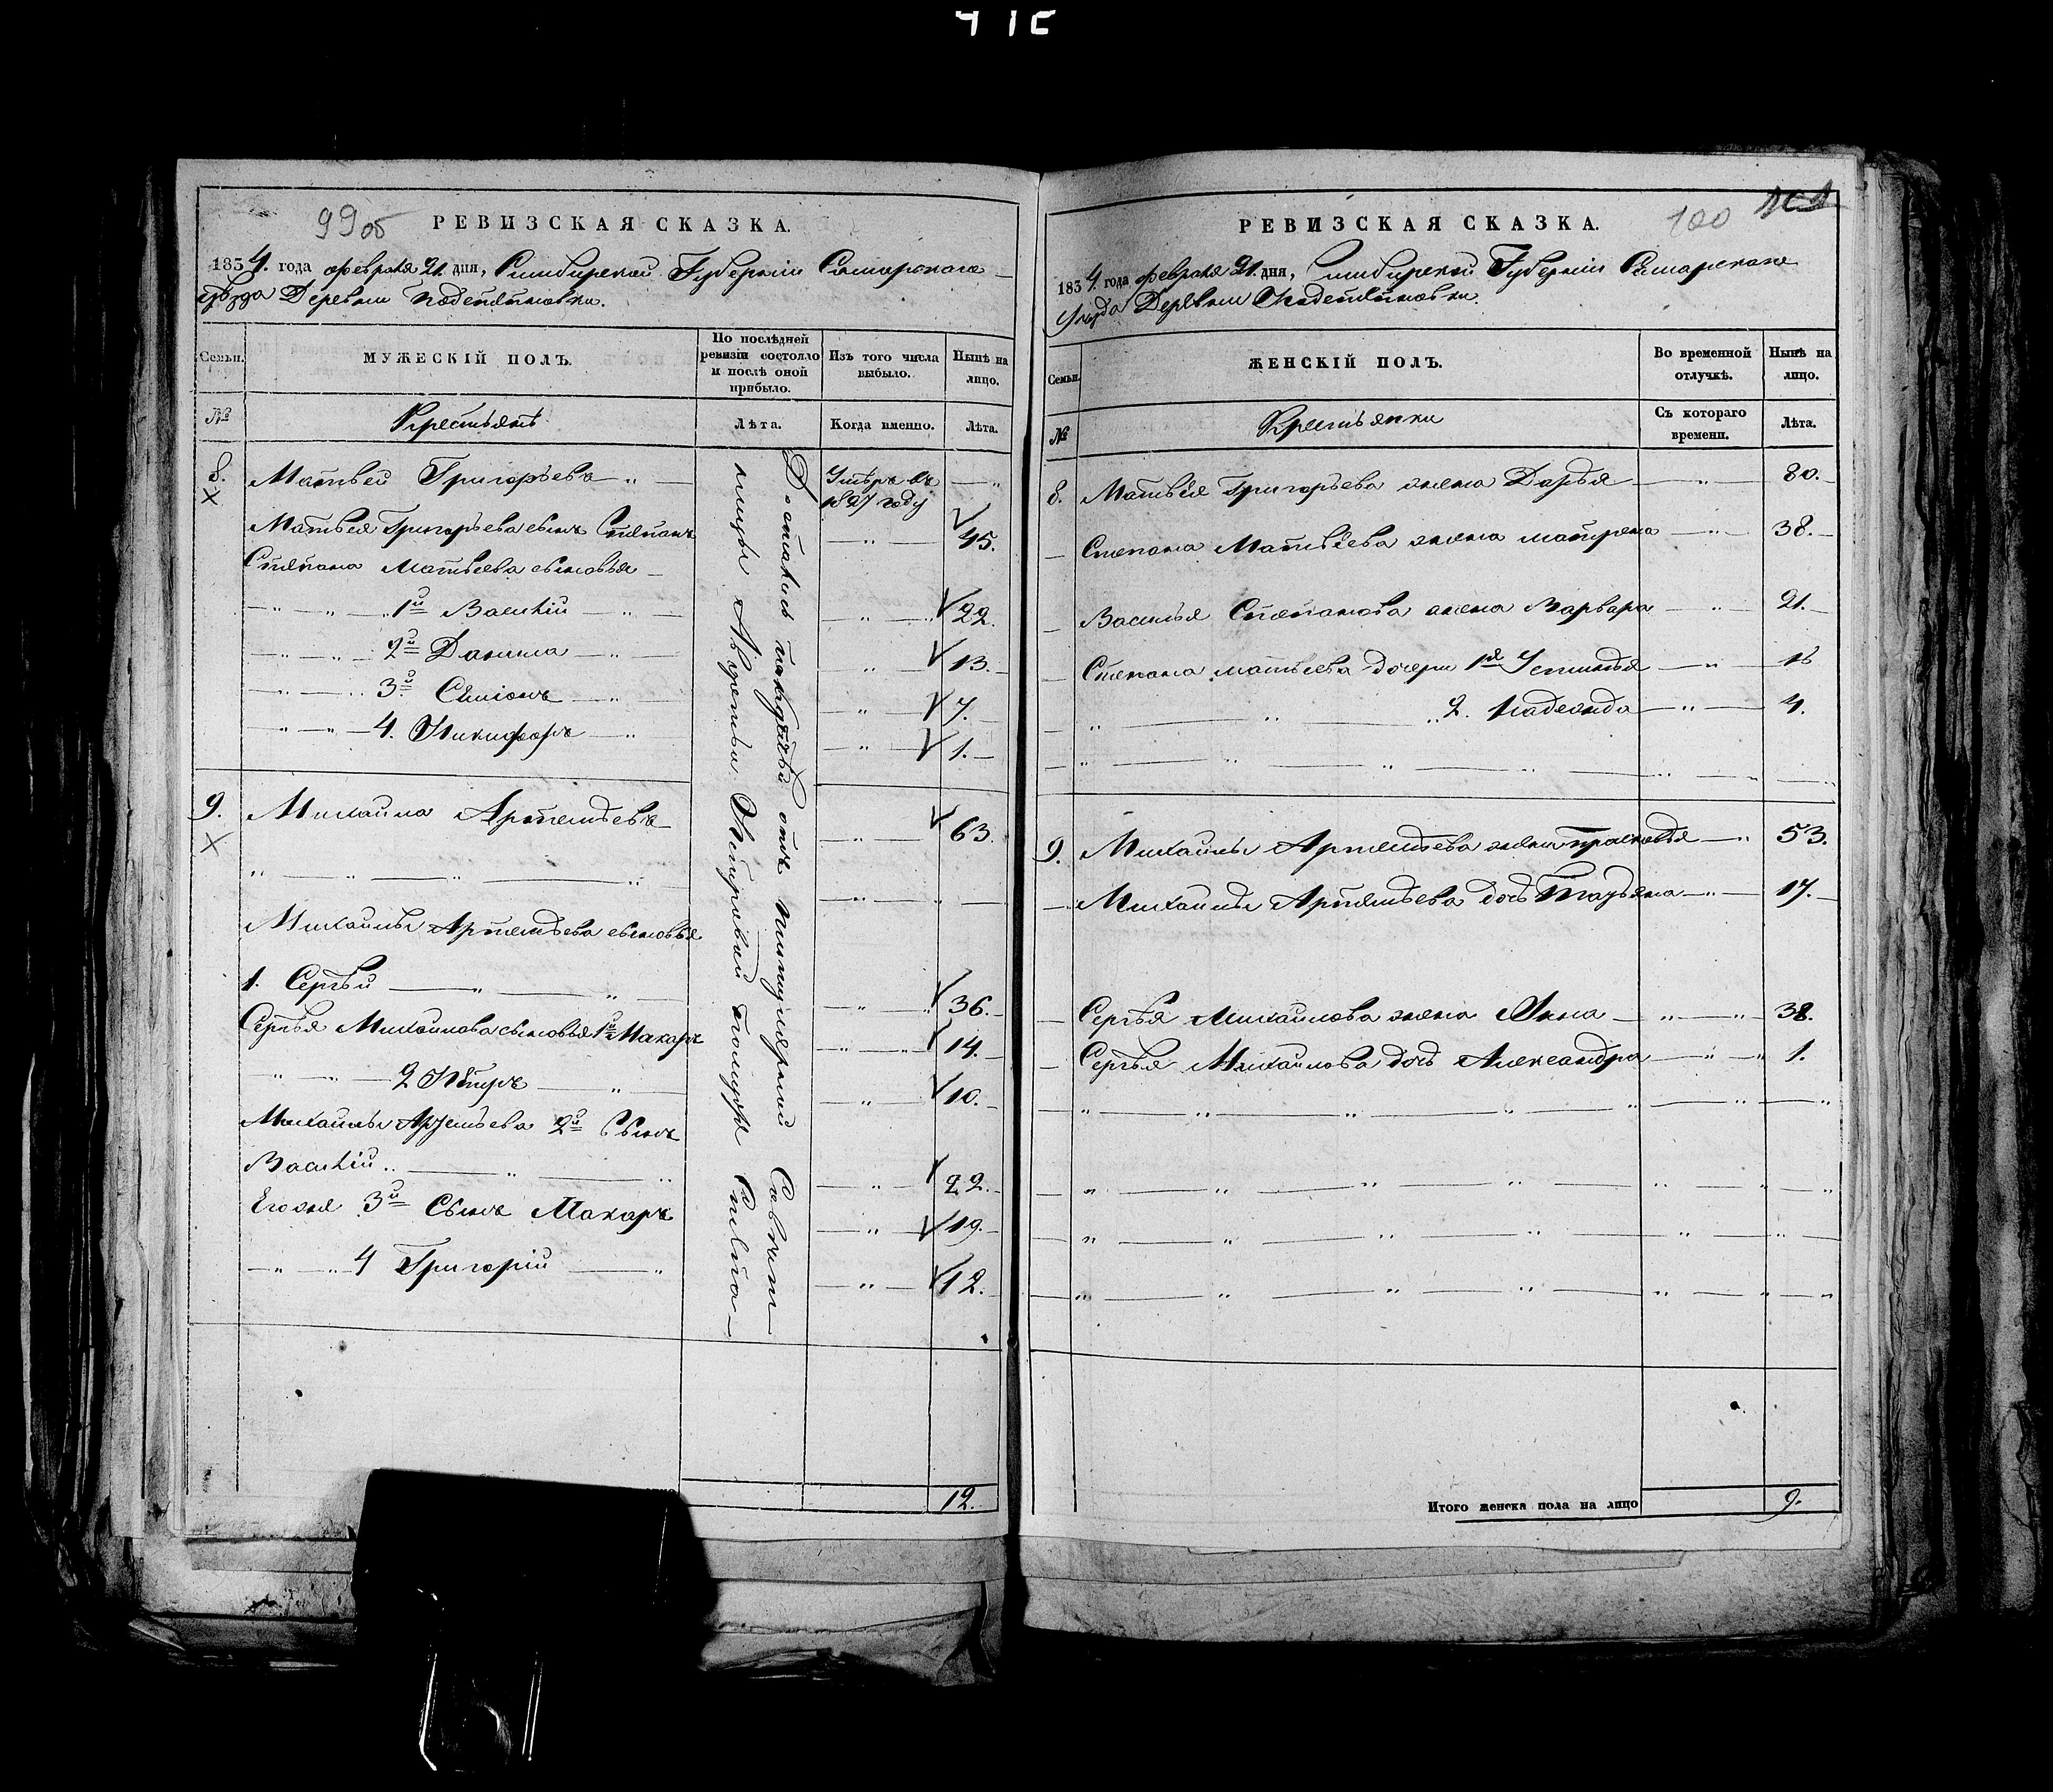 99 об
РЕВИЗСКАЯ СКАЗКА.
1834. года февраля 21. дня, Симбирской Губерніи Самарскаго
уѣзда Деревни
Семьи.
МУЖЕСКІЙ ПОЛЪ.
По послѣдней
ревизіи состояло
и послѣ оной
прибыло.
Изъ того числа
выбыло.
Нынѣ на
лицо.
№
Крестьянъ
Лѣта.
Когда именно.
Лѣта.
8. Матвей Григорьевъ Умѣръ въ
1827 году
Матвея Григорьева сынъ Степанъ 45.
Степана Матвеева сыновья
1й Василій 22.
2й Данила 13.
3й Семіонъ 7.
4. Никифоръ 1.
9. Михаила Артемьевъ 63.
Михайлы Артемьева сыновья
1. Сергѣй 36.
Сергѣя Михаилова сыновья 1й Макаръ 14.
2 Пётръ 10.
Михайлы Артемьева 2й Сынъ
Василій 22.
Егожа 3й Сынъ Макаръ 19.
4 Григорій 12.
Достались от
12.
100
РЕВИЗСКАЯ СКАЗКА.
1834. года февраля 21. дня, Симбирской Губерніи Самарскаго
Уѣзда Деревни
Семьи.
ЖЕНСКІЙ ПОЛЪ.
Во временной
отлучкѣ.
Нынѣ на
лицо.
№
Крестьянки
Съ котораго
времени.
Лѣта.
8. Матвѣя Григорьева жена Дарья 80.
Степана Матвѣева жена матрена 38.
Василья Степанова жена Варвара 21.
Степана матвеева дочери 1я Устинья 16
2. Надежда 4.
9. Михайлы Артемьева жена прасковья 53.
Михайлы Артемьева дочь Татьяна 17.
Сергѣя Михаилова жена Анна 38.
Сергѣя Михаилова дочь Александра 1.
Итого женска пола на лицо 9.